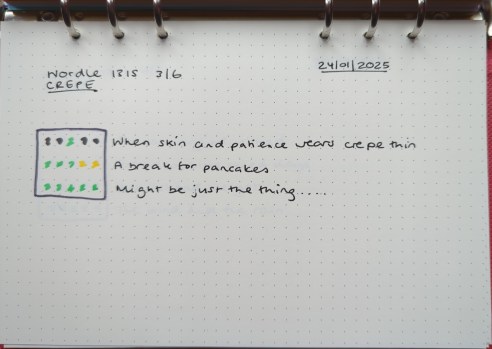 24/01/2025
Wordle 1315 3/6
CREPE
When skin and patience wears crepe thin
A break for pancakes
Might be just the thing.....